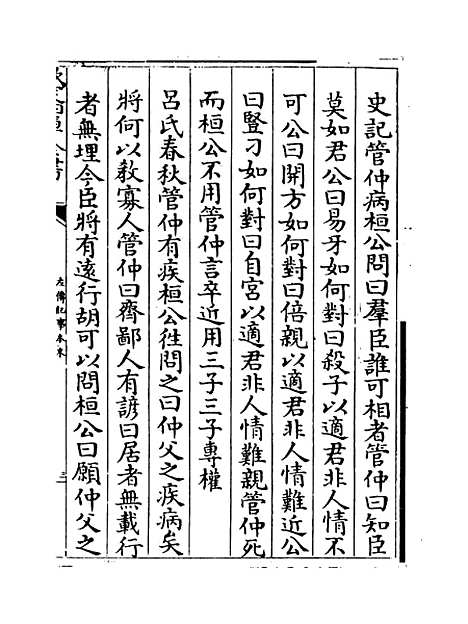 史記管仲病桓公問曰羣臣誰可相者管仲曰知臣
莫如君公曰易牙如何對曰殺子以適君非人情不
可公曰開方如何對曰倍親以適君非人情難近公
曰豎刁如何對曰自宫以適君非人情難親管仲死
而桓公不用管仲言卒近用三子三子專權
吕氏春秋管仲有疾桓公徃問之曰仲父之疾病矣
將何以教寡人管仲曰齊鄙人有諺曰居者無載行
者無埋今臣將有逺行胡可以問桓公曰願仲父之
左傳紀事本末
三